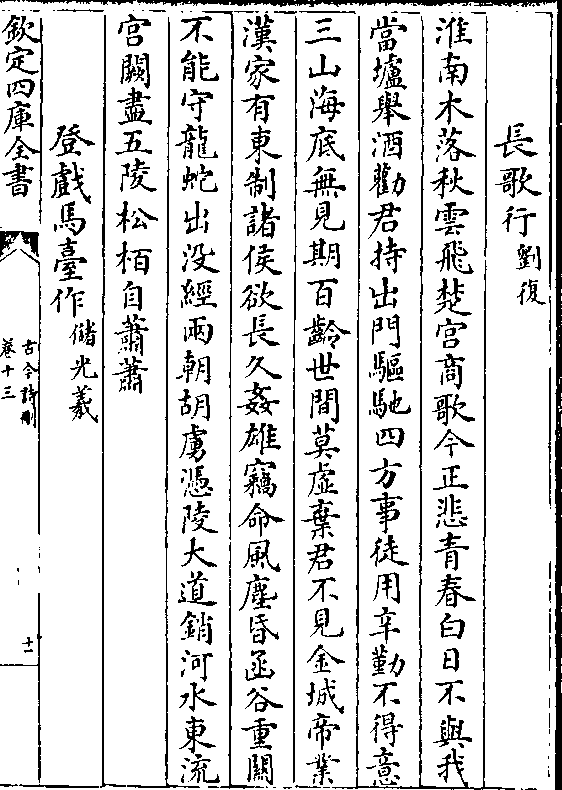 長歌行劉復
淮南木落秋雲飛楚宫商歌今正悲青春白日不與我
當壚舉酒勸君持出門驅馳四方事徒用辛勤不得意
三山海底無見期百齡世間莫虚棄君不見金城帝業
漢家有東制諸侯欲長久姦雄竊命風塵昏函谷重關
不能守龍蛇出没經兩朝胡虜憑陵大道銷河水東流
宫闕盡五陵松栢自蕭蕭
登戲馬臺作儲光羲
欽定四庫全書
古今詩刪
卷十三
十二